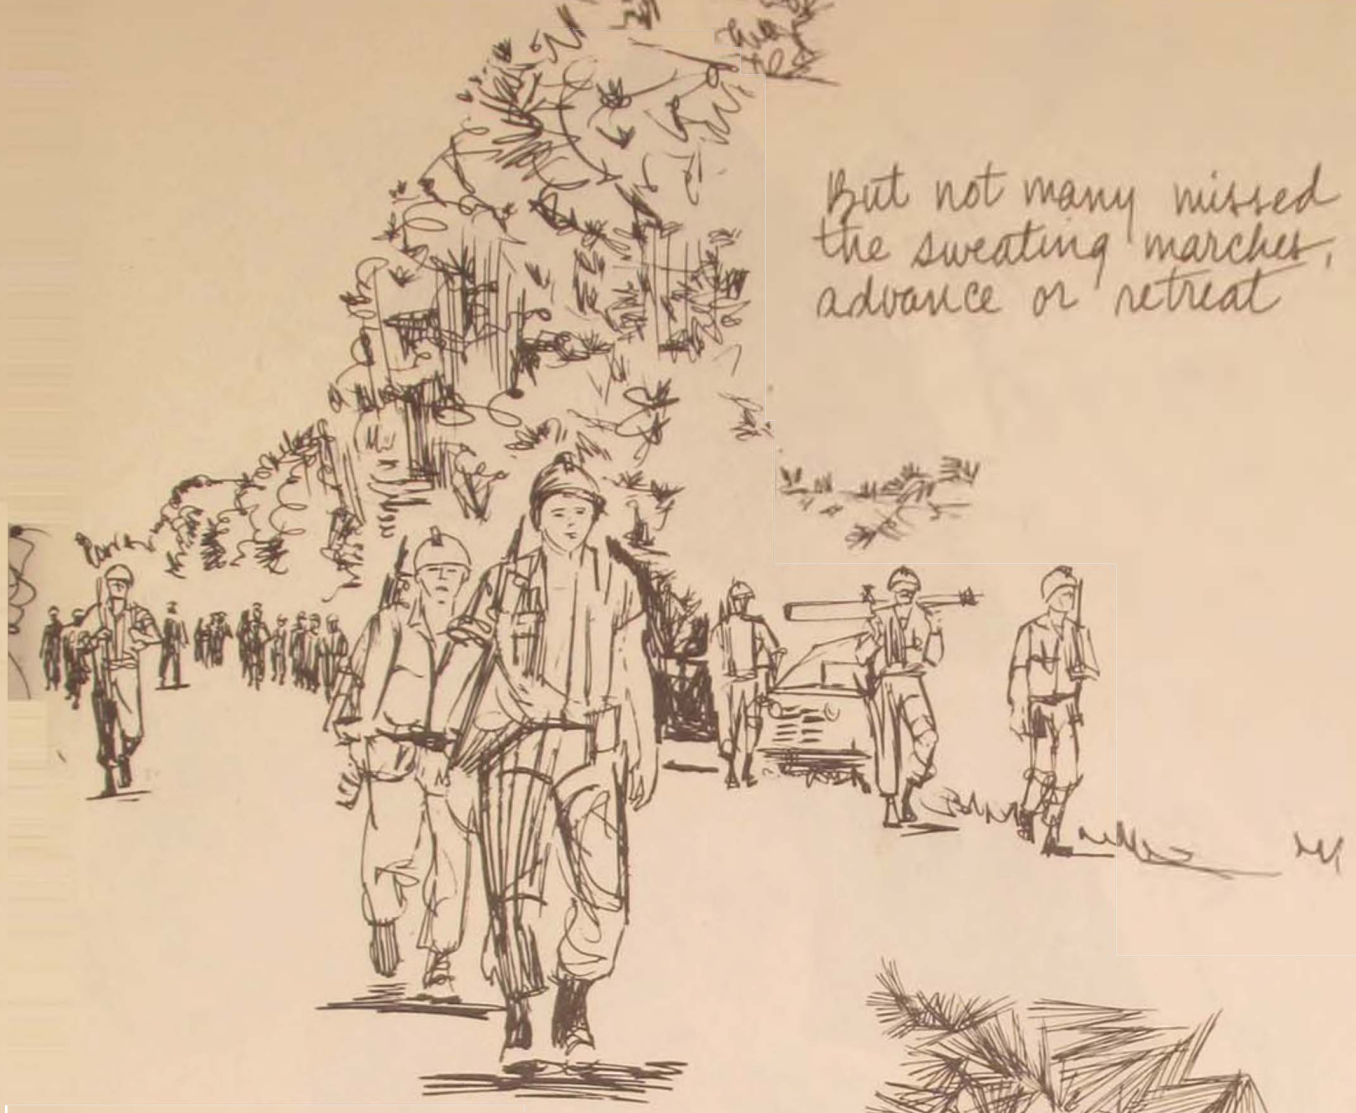 But not many missed
the sweating marches,
advance or retreat